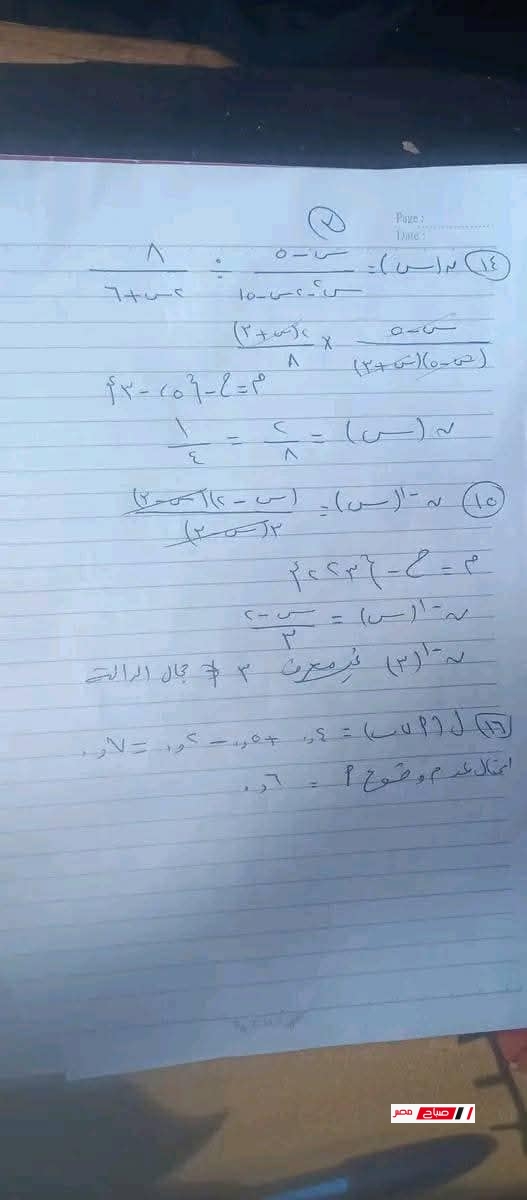 ٢
Page :
Date :
١٤ ن(س) = س-٥ / س٢-٢س-١٥ ÷ ٨ / ٢س+٦
س-٥ / (س-٥)(س+٣) × ٢(س+٣) / ٨
م = ح - {٥، -٣}
ن(س) = ٢/٨ = ١/٤
١٥ ن-١(س) = (س-٢)(س-٣) / ٣(س-٣)
م = ح - {٣، ٢}
ن-١(س) = س-٢ / ٣
ن-١(٣) غير معرف ٣ ∉ مجال الدالة
١٦ ل(A∪ب) = ٤,٠ + ٥,٠ - ٢,٠ = ٧,٠
احتمال عدم وقوع A = ٦,٠
صباح مصر